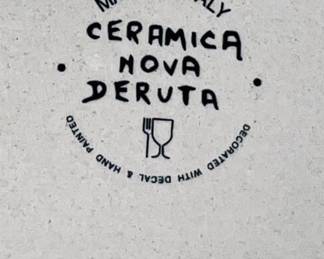 CERAMICA
NOVA
DERUTA
DECORATED WITH DECAL & HAND PAINTED